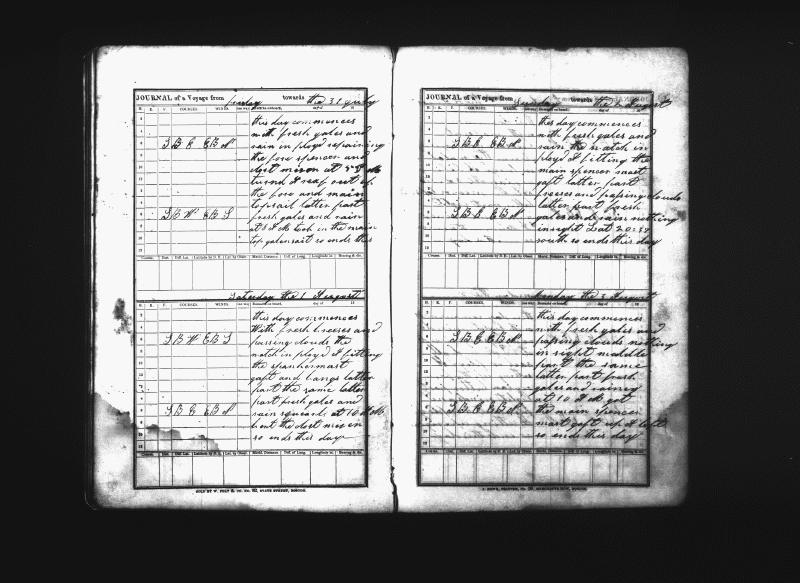 JOURNAL of a Voyage from friday towards the 31 July
H. K. F. COURSES. WINDS. day of 18
this day commences
S B E E B N with fresh gales and
rain in ployd repairing
the fore spencer and
turnd 1 reef out of
the fore and main
topsail latter part
S B W E B S fresh gales and rain
at 8 A M took in the main
top galansail so ends this
Course. Dist. Diff. Lat. Latitude by D. R. Lat. by Obser. Merid. Distance. Diff. of Long. Longitude in. Bearing & dis.
Saturday the 1 August
H. K. F. COURSES. WINDS. day of 18
this day commences
With fresh breeses and
S B W E B S passing clouds the
watch in ployd fitting
the spankermast
gaft and bangs latter
part the same latter
part fresh gales and
S B E E B N rain squeals at 10
bent the
so ends this day
Course. Dist. Diff. Lat. Latitude by D. R. Lat. by Obser. Merid. Distance. Diff. of Long. Longitude in. Bearing & dis.
SOLD BY STATE STREET, BOSTON.
JOURNAL of a Voyage from Sunday towards the 2 August
H. K. F. COURSES. WINDS. day of 18
this day commences
with fresh gales and
S B E E B N rain the watch in
ployd fitting the
main spencer mast
gaft latter part
breeses and passing clouds
latter part fresh
S B E E B N gales and rain nothing
in sight Lat 20:37
south so ends this day
Course. Dist. Diff. Lat. Latitude by D. R. Lat. by Obser. Merid. Distance. Diff. of Long. Longitude in. Bearing & dis.
Monday the 3 August
H. K. F. COURSES. WINDS. day of 18
this day commences
with fresh gales and
S B E E B N passing clouds nothing
in sight middle
part the same
latter part fresh
gales and rainey
at 10 A M got
S B E E B N the main spencer
mast gaft up
so ends this day
Course. Dist. Diff. Lat. Latitude by D. R. Lat. by Obser. Merid. Distance. Diff. of Long. Longitude in. Bearing & dis.